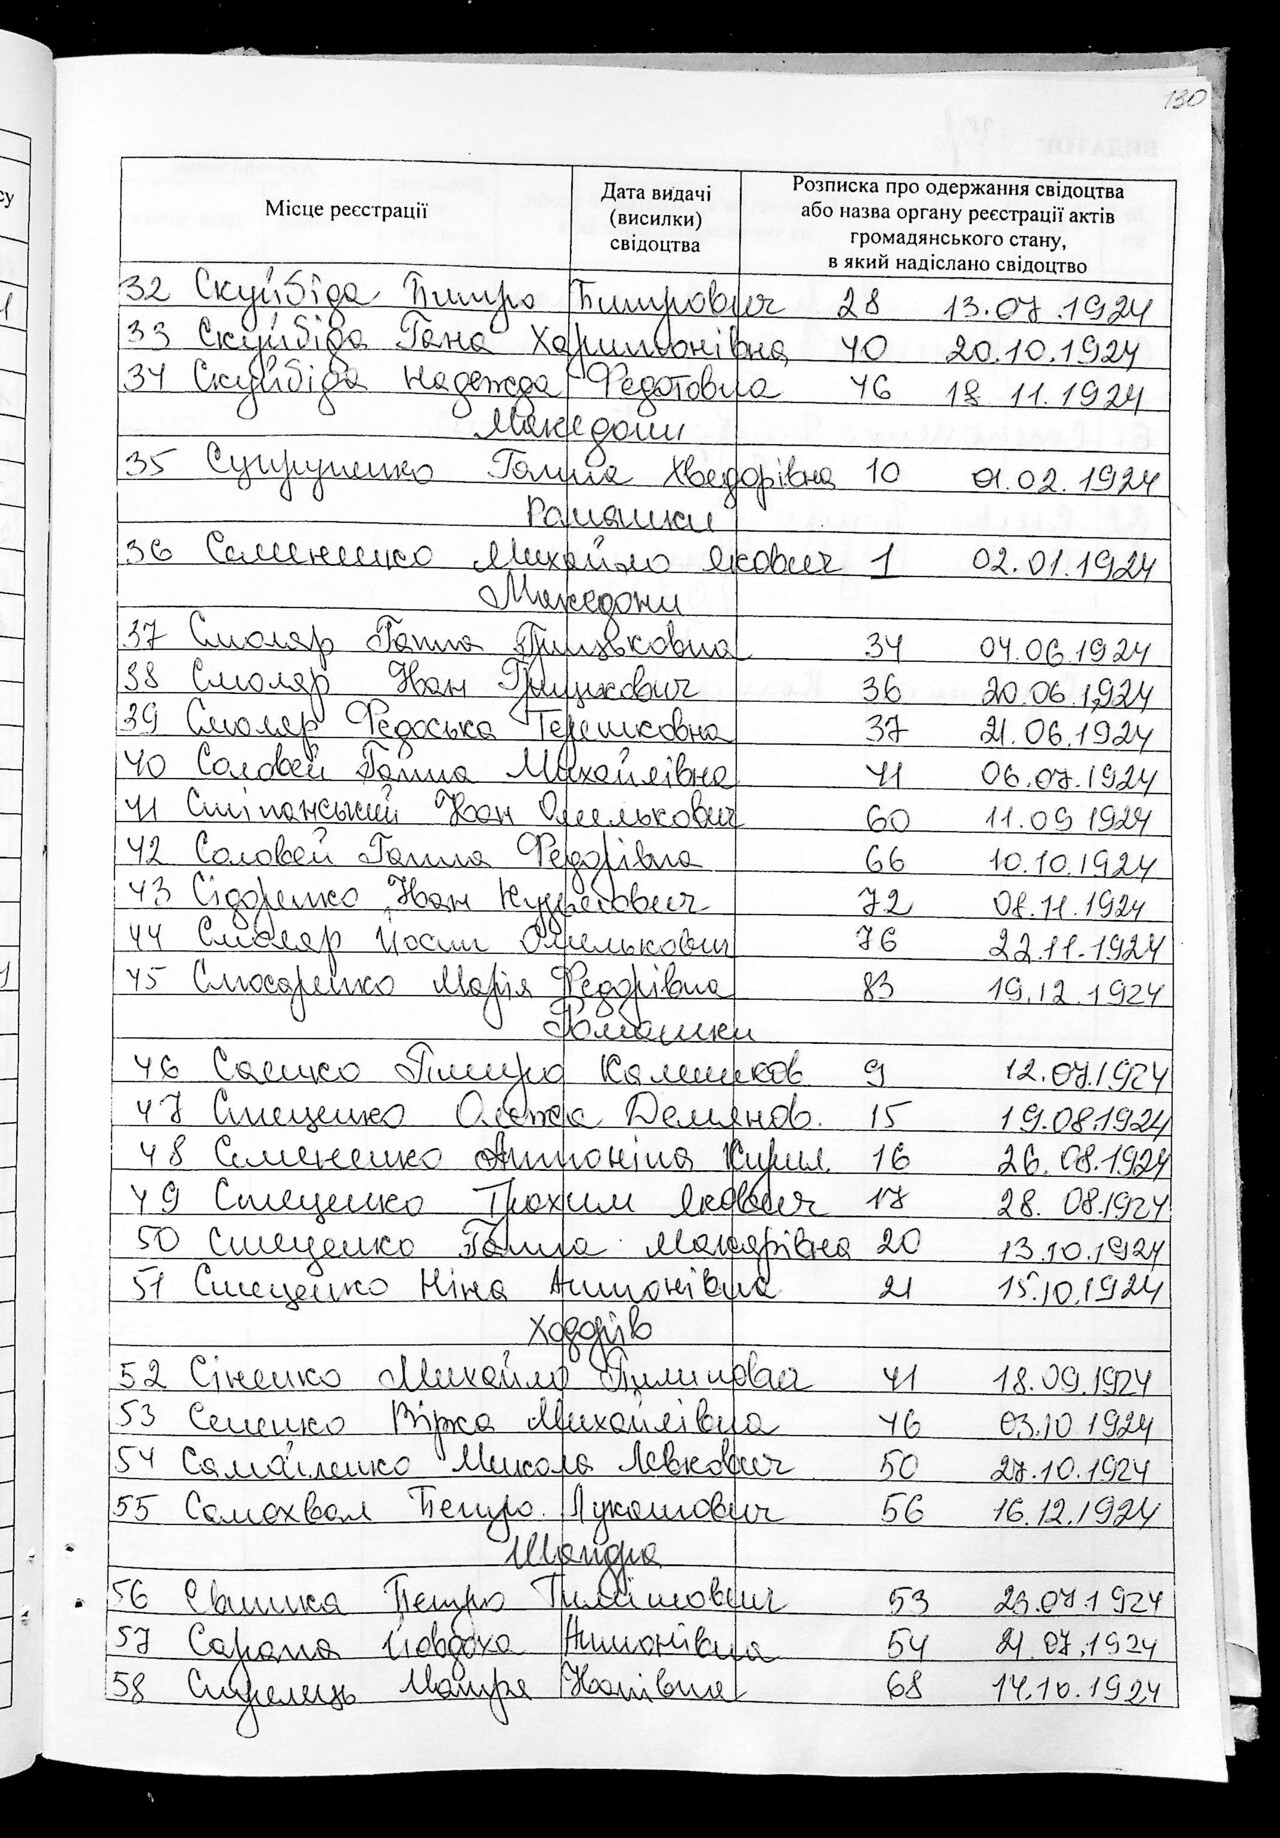 130
Місце реєстрації
Дата видачі
(висилки)
свідоцтва
Розписка про одержання свідоцтва
або назва органу реєстрації актів
громадянського стану,
в який надіслано свідоцтво
32 Скуйбіда Питро Питрович 28 13.07.1924
33 Скуйбіда Гана Харитонівна 40 20.10.1924
34 Скуйбіда Надежда Федотовна 46 18 11.1924
Македони
35 Супруненко Галина Хведорівна 10 01.02.1924
Ромашки
36 Семененко Михайло Якович 1 02.01.1924
Македони
37 Смоляр Ганна Грицьковна 34 04.06.1924
38 Смоляр Иван Грицкович 36 20.06.1924
39 Смоляр Федоська Терешковна 37 21.06.1924
40 Соловей Ганна Михайлівна 41 06.07.1924
41 Стіпанський Иван Омелькович 60 11.09 1924
42 Соловей Ганна Федорівна 66 10.10.1924
43 Сідоренко Иван Кузьмович 72 08.11.1924
44 Смоляр Йосип Омелькович 76 22.11.1924
45 Слюсаренко Марія Федорівна 83 19.12.1924
Ромашки
46 Саєнко Пмитро Калеников 9 12.07.1924
47 Стеценко Олежка Демянов. 15 19.08.1924
48 Семененко Антоніна Кирил. 16 26.08.1924
49 Стеценко Трохим Якович 17 28.08.1924
50 Стеценко Ганна Макарівна 20 13.10.1924
51 Стеценко Ніна Антонівна 21 15.10.1924
Ходорів
52 Сіненко Михайло Пилипович 41 18.09.1924
53 Сененко Вірка Михайлівна 46 03.10 1924
54 Самойленко Микола Левкович 50 27.10.1924
55 Самохвал Петро Лукашович 56 16.12.1924
Шандра
56 Свитка Петро Тимішович 53 23.07 1924
57 Сарана Йовдоха Антонівна 54 21.07.1924
58 Стрелець Мотря Иванівна 68 14.10.1924